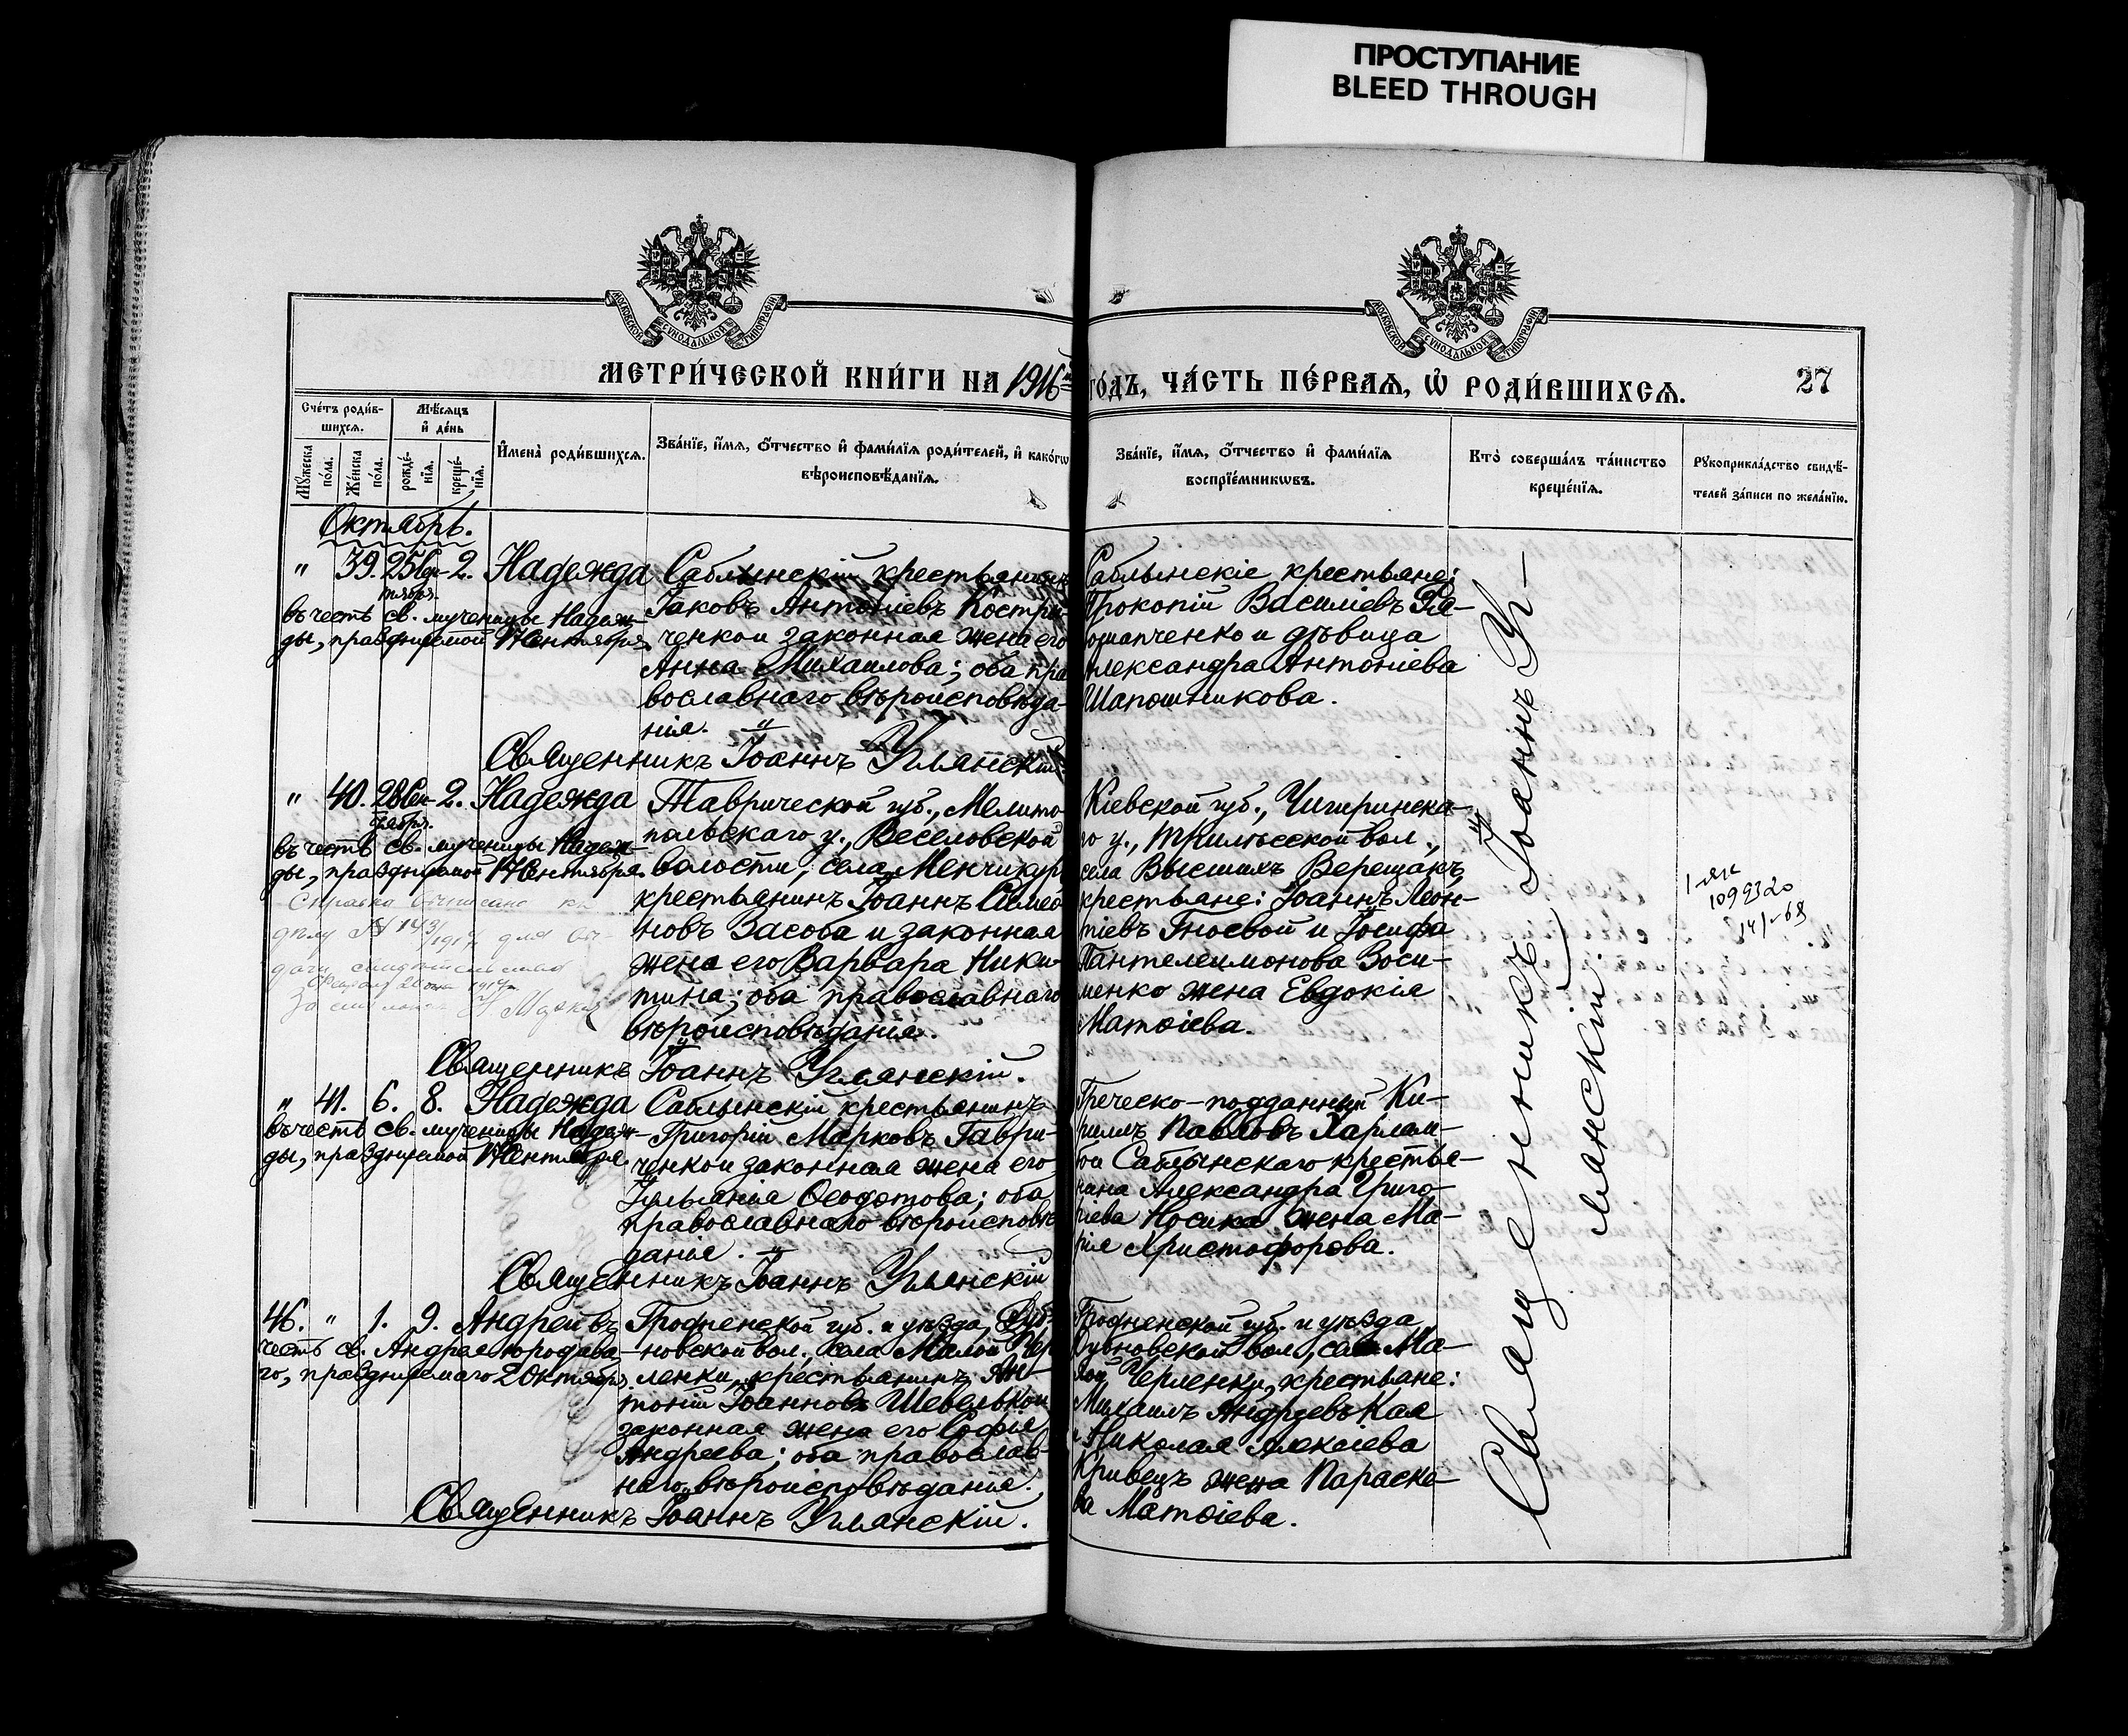 ПРОСТУПАНИЕ
BLEED THROUGH
МОСКОВСКОЙ СѴНОДАЛЬНОЙ ТИПОГРАФІИ
МОСКОВСКОЙ СѴНОДАЛЬНОЙ ТИПОГРАФІИ
МЕТРИ́ЧЕСКОЙ КНИ́ГИ НА 1916 ГО́ДЪ, ЧА́СТЬ ПЕ́РВАѦ, Ѽ РОДИ́ВШИХСѦ.
27
Сче́тъ роди́в-
шихсѧ.
Мѣ́сѧцъ
и҆ де́нь
Мꙋ́жеска
по́ла.
Же́нска
по́ла.
рожде́-
нїѧ.
креще́-
нїѧ.
И҆мена̀ роди́вшихсѧ.
Зва́нїе, и҆́мѧ, ѻ҆́тчество и҆ фами́лїѧ роди́телей, и҆ како́гѡ
вѣроисповѣ́данїѧ.
Зва́нїе, и҆́мѧ, ѻ҆́тчество и҆ фами́лїѧ
воспрїе́мникѡвъ.
Кто̀ соверша́лъ та́инство
креще́нїѧ.
Рꙋкоприкла́дство свидѣ́-
телей за́писи по жела́нїю.
Октябрь.
" 39. 25 Сен- 2. Надежда
тября.
въ честь св. мученицы Надеж-
ды, празднуемой 17 Сентября
Саблынскій крестьянинъ
Іаковъ Антоніевъ Костри-
ченко и законная жена его
Анна Михаилова; оба пра
вославнаго вѣроисповѣда-
нія.
Священникъ Іоаннъ Углянскій
Саблынскіе крестьяне:
Прокопій Василіевъ
и дѣвица
Александра Антоніева
Шапошникова.
" 40. 28 Сен- 2. Надежда
тября.
въ честь св. мученицы Надеж-
ды, празднуемой 17 Сентября
Справка
для
1917
Таврической губ., Мелито-
польскаго у., Веселовской
волости, села Менчикур
крестьянинъ Іоаннъ Симео
новъ Засоба и законная
жена его Варвара Ники-
тина; оба православнаго
вѣроисповѣданія.
Священникъ Іоаннъ Углянскій.
Кіевской губ., Чигиринска-
го у., Трилѣсской вол.,
села Высшихъ Верещакъ
крестьяне: Іоаннъ Леон-
тіевъ Гноевой и Іосифа
Пантелеимонова Воси-
менко жена Евдокія
Матѳіева.
1092320
" 41. 6. 8. Надежда
въ честь св. мученицы Надеж-
ды, празднуемой 17 Сентября.
Саблынскій крестьянинъ
Григорій Марковъ Гаври-
ченко и законная жена его
Іуліанія Ѳеодотова; оба
православнаго вѣроисповѣ
данія.
Священникъ Іоаннъ Углянскій
Греческо-подданный Ки-
риллъ Павловъ Харлам-
и Саблынскаго крестья-
нина Александра Григо-
ріева Носика жена Ма-
рія Христофорова.
46. " 1. 9. Андрей въ
честь св. Андрея юродива-
го, празднуемаго 2 Октября
Гродненской губ. и уѣзда, Дуб-
новской вол., села Малой Чер
ленки, крестьянинъ Ан-
тоній Іоанновъ Шевелько и
законная жена его Софія
Андреева; оба православ-
наго вѣроисповѣданія.
Священникъ Іоаннъ Углянскій.
Гродненской губ. и уѣзда
Дубновской вол., села Ма-
лой Черленки, крестьяне:
Михаилъ Андреевъ Кая
и Николая Алексіева
Кривецъ жена Параске-
ва Матѳіева.
Священникъ Іоаннъ Уг-
лянскій.